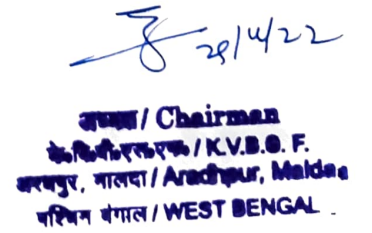 29/4/22
अध्यक्ष / Chairman
के०वि०बी०एस०एफ० / K.V.B.S.F.
अराधपुर, मालदा / Aradhpur, Malda
पश्चिम बंगाल / WEST BENGAL